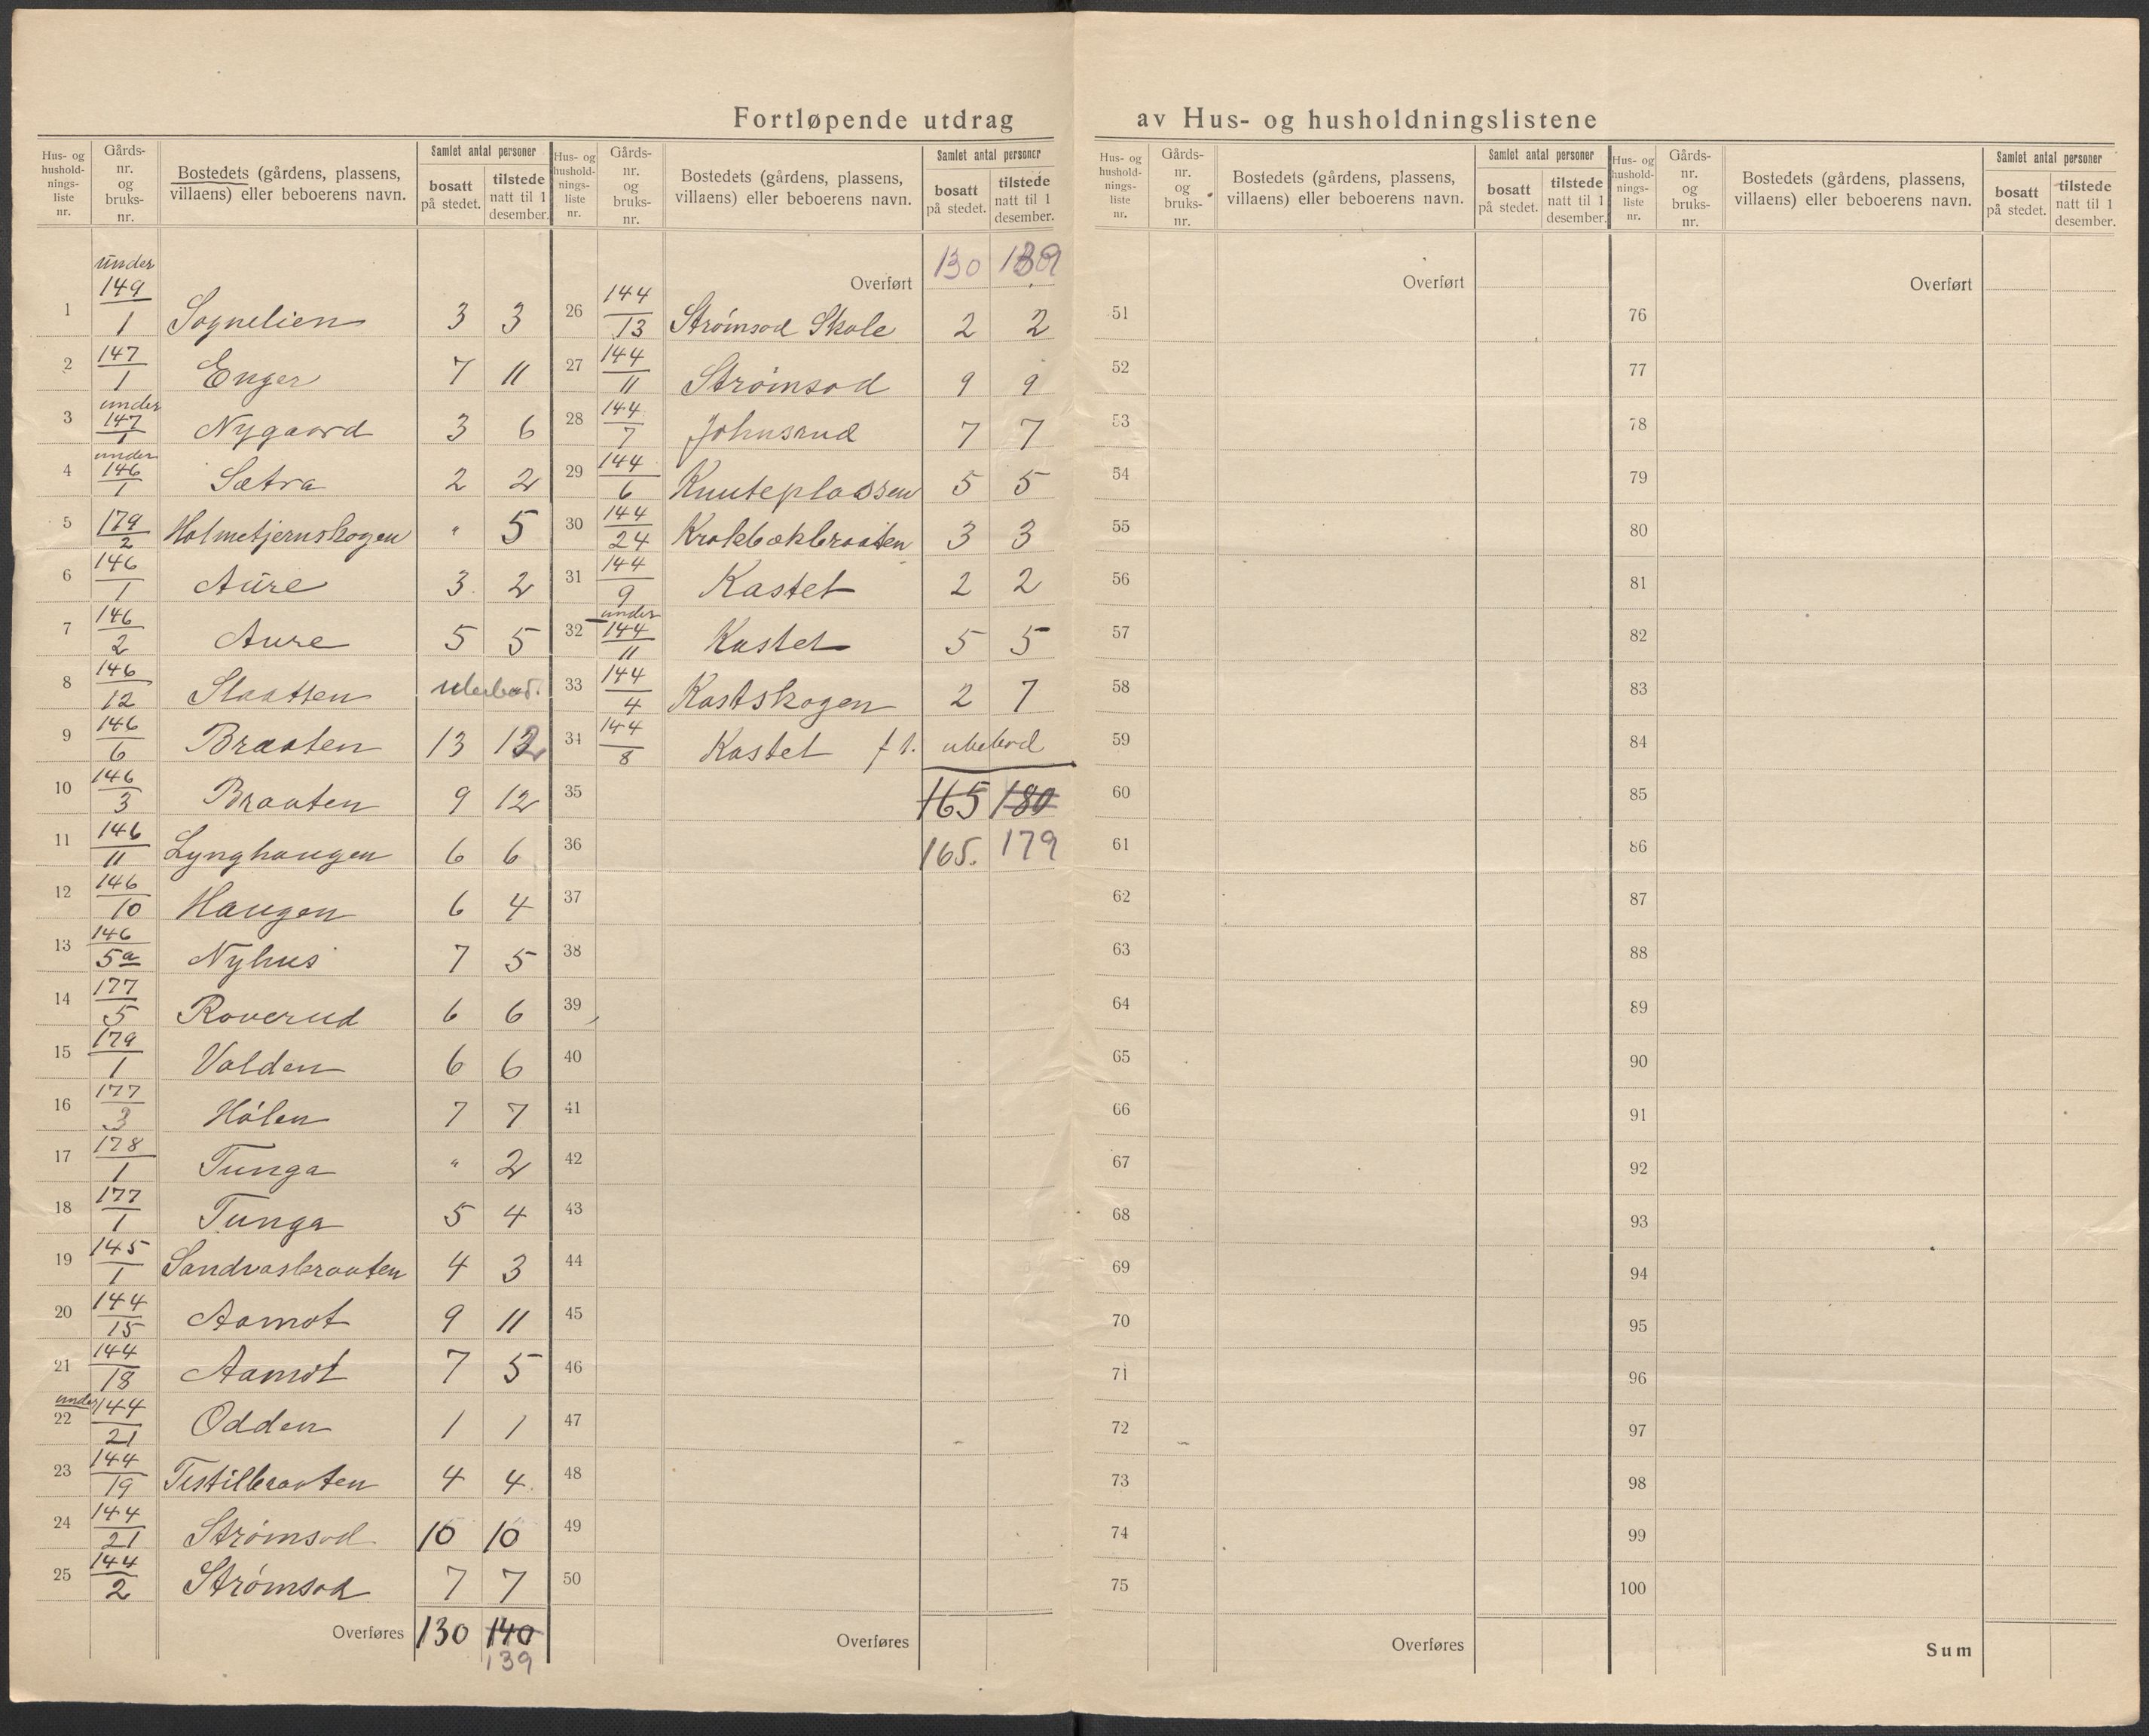 Fortløpende utdrag av Hus- og husholdningslistene
Hus- og hushold-nings-liste nr. | Gårds-nr. og bruks-nr. | Bostedets (gårdens, plassens, villaens) eller beboerens navn. | Samlet antal personer | bosatt på stedet. | tilstede natt til 1 desember.
Hus- og hushold-nings-liste nr. | Gårds-nr. og bruks-nr. | Bostedets (gårdens, plassens, villaens) eller beboerens navn. | Samlet antal personer | bosatt på stedet. | tilstede natt til 1 desember.
1 under 149/1 Sognelien 3 3
2 147/1 Enger 7 11
3 under 147/1 Nygaard 3 6
4 under 146/1 Sætra 2 2
5 179/2 Holmetjernskogen " 5
6 146/1 Aure 3 2
7 146/2 Aure 5 5
8 146/12 Slaatten ubebod.
9 146/6 Braaten 13 12
10 146/3 Braaten 9 12
11 146/11 Lynghaugen 6 6
12 146/10 Haugen 6 4
13 146/5a Nyhus 7 5
14 177/5 Roverud 6 6
15 179/1 Valden 6 6
16 177/3 Hólen 7 7
17 178/1 Tunga " 2
18 177/1 Tunga 5 4
19 145/1 Sandvasbraaten 4 3
20 144/15 Aamot 9 11
21 144/18 Aamot 7 5
22 under 144/21 Odden 1 1
23 144/19 Tistilbraaten 4 4
24 144/21 Strømsod 10 10
25 144/2 Strømsod 7 7
Overføres 130 140
139
Overført 130 139
26 144/13 Strømsod Skole 2 2
27 144/11 Strømsod 9 9
28 144/7 Johnsrud 7 7
29 144/6 Knuteplassen 5 5
30 144/24 Krokbækbraaten 3 3
31 144/9 Kastet 2 2
32 under 144/11 Kastet 5 5
33 144/4 Kastskogen 2 7
34 144/8 Kastet f t. ubebod
35 165 180
36 165. 179
37
38
39
40
41
42
43
44
45
46
47
48
49
50
Overføres
Hus- og hushold-nings-liste nr. | Gårds-nr. og bruks-nr. | Bostedets (gårdens, plassens, villaens) eller beboerens navn. | Samlet antal personer | bosatt på stedet. | tilstede natt til 1 desember.
Overført
51
52
53
54
55
56
57
58
59
60
61
62
63
64
65
66
67
68
69
70
71
72
73
74
75
Overføres
Hus- og hushold-nings-liste nr. | Gårds-nr. og bruks-nr. | Bostedets (gårdens, plassens, villaens) eller beboerens navn. | Samlet antal personer | bosatt på stedet. | tilstede natt til 1 desember.
Overført
76
77
78
79
80
81
82
83
84
85
86
87
88
89
90
91
92
93
94
95
96
97
98
99
100
Sum